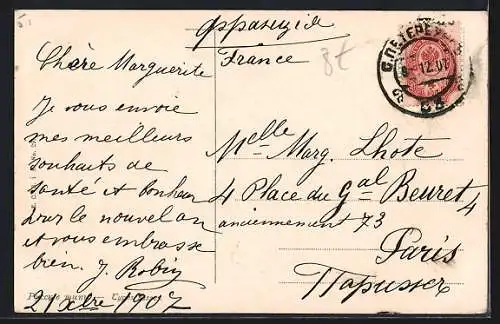 Франція
France
Chère Marguerite
Je vous envoie
mes meilleurs
souhaits de
santé et bonheur
pour le nouvel an
et vous embrasse
bien. J. Robin
21 xbre 1907
Melle Marg. Lhote
4 Place du Gal Beuret 4
anciennement 73
Paris
Парижъ
С.ПЕТЕРБУРГ
12.07